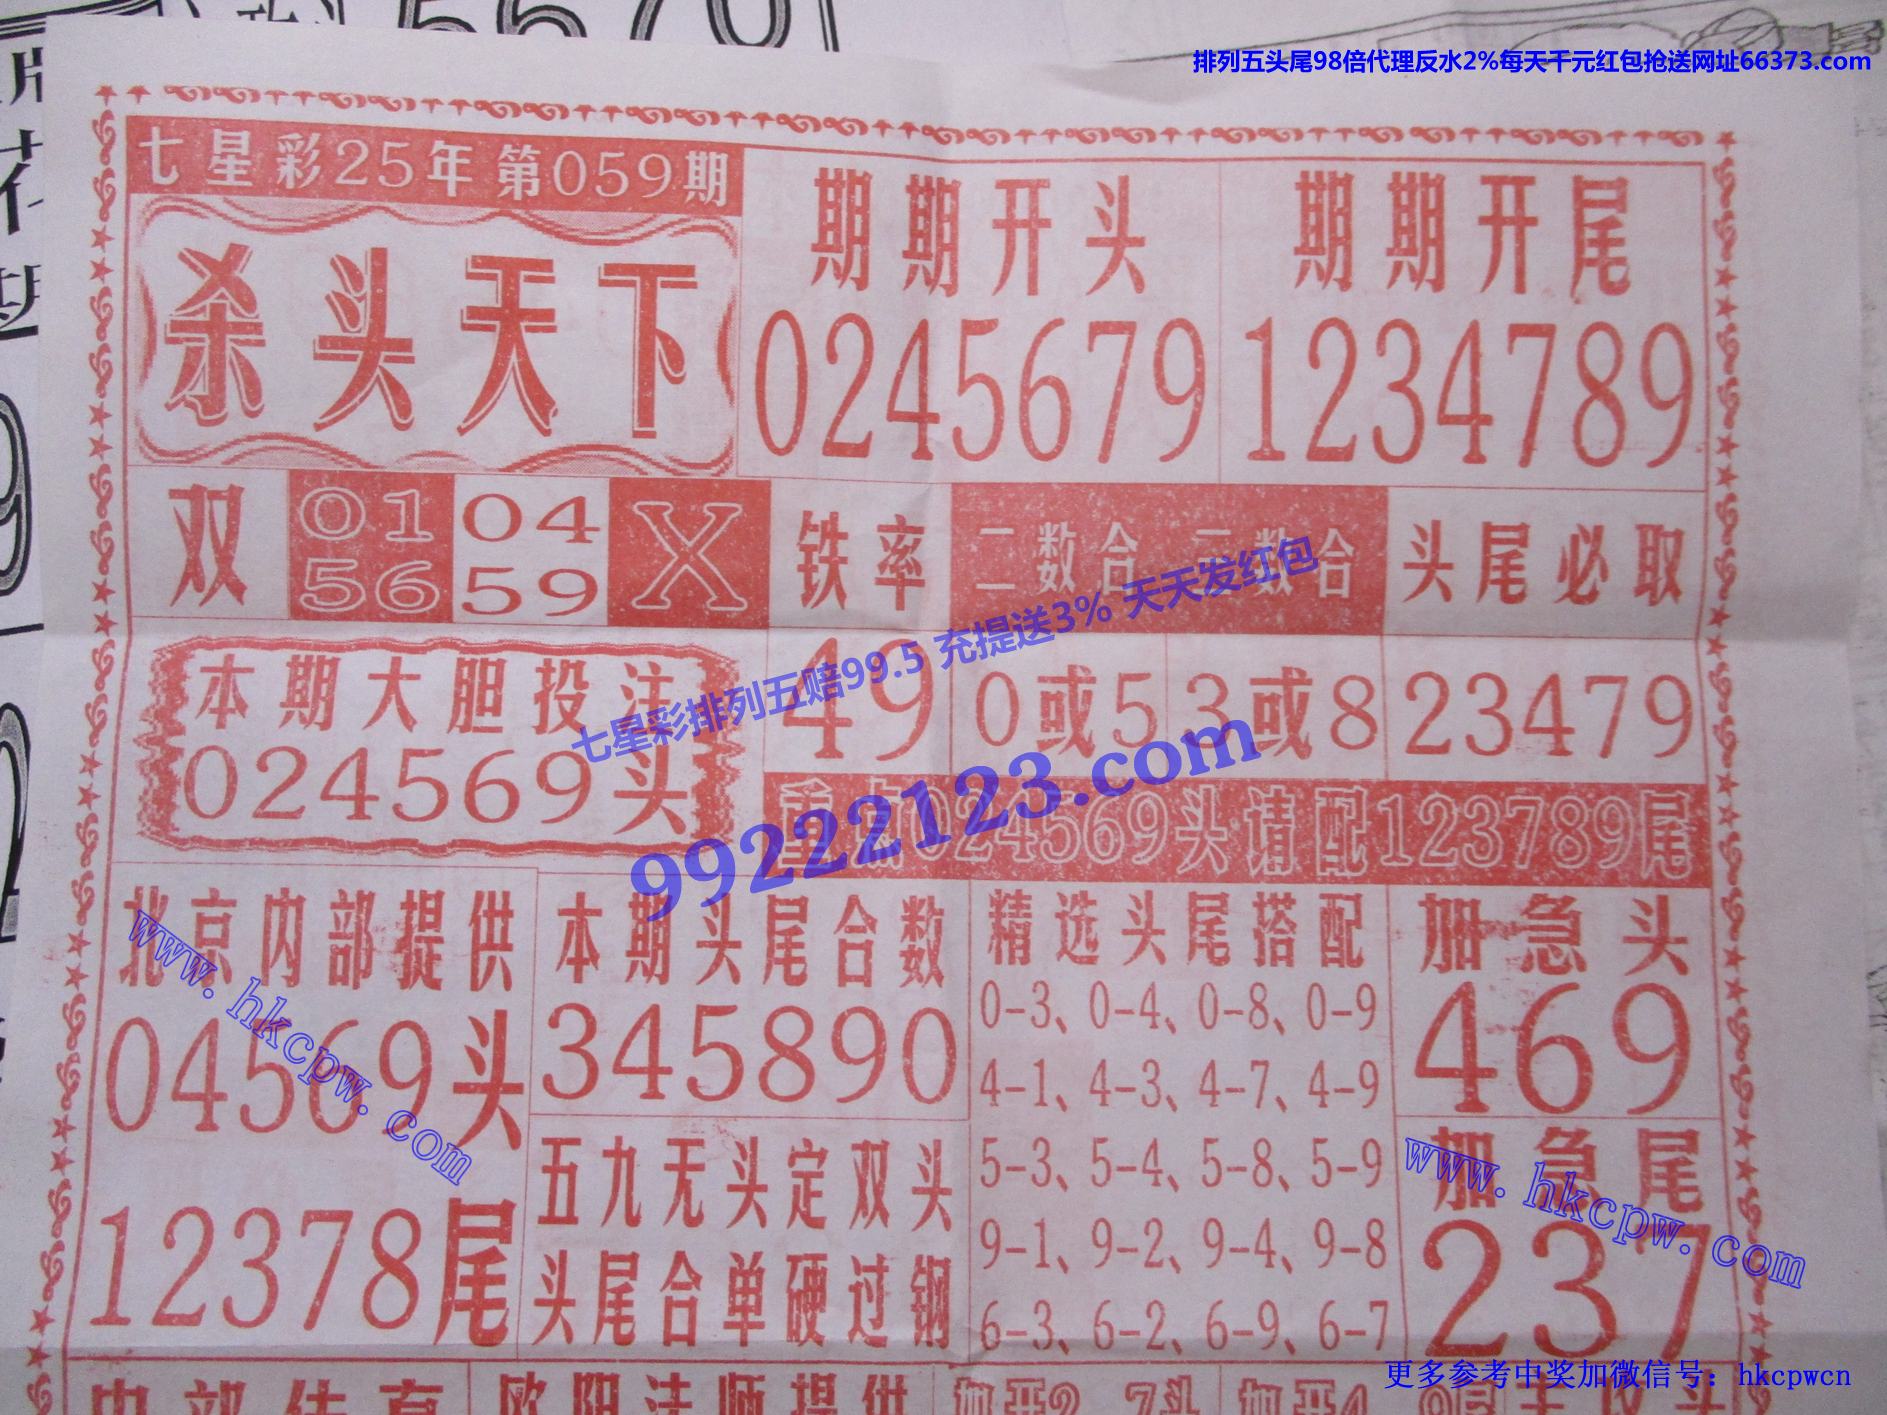 排列五头尾98倍代理反水2%每天千元红包抢送网址66373.com
七星彩25年第059期
杀头天下
期期开头
0245679
期期开尾
1234789
双
01 04
56 59
X
铁率
49
二数合
0或5
三数合
3或8
头尾必取
23479
本期大胆投注
024569头
024569头请配123789尾
七星彩排列五赔99.5 充提送3% 天天发红包
99222123.com
北京内部提供
04569头
12378尾
www.hkcpw.com
本期头尾合数
345890
五九无头定双头
头尾合单硬过钢
精选头尾搭配
0-3、0-4、0-8、0-9
4-1、4-3、4-7、4-9
5-3、5-4、5-8、5-9
9-1、9-2、9-4、9-8
6-3、6-2、6-9、6-7
加急头
469
加急尾
237
www.hkcpw.com
更多参考中奖加微信号：hkcpwcn